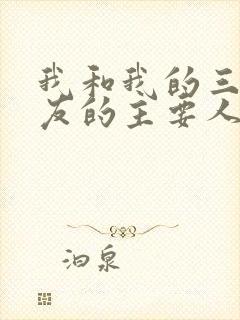 我和我的三
友的主要人
泊泉